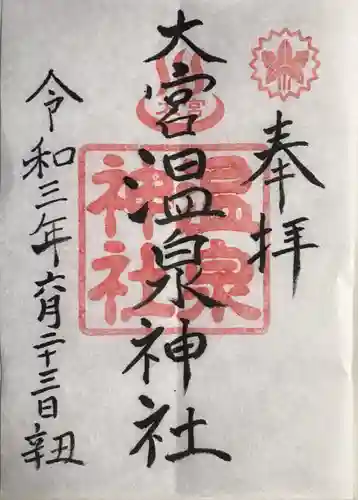 奉拝
大宮温泉神社
令和三年六月二十三日辛丑
大宮
温泉
神社